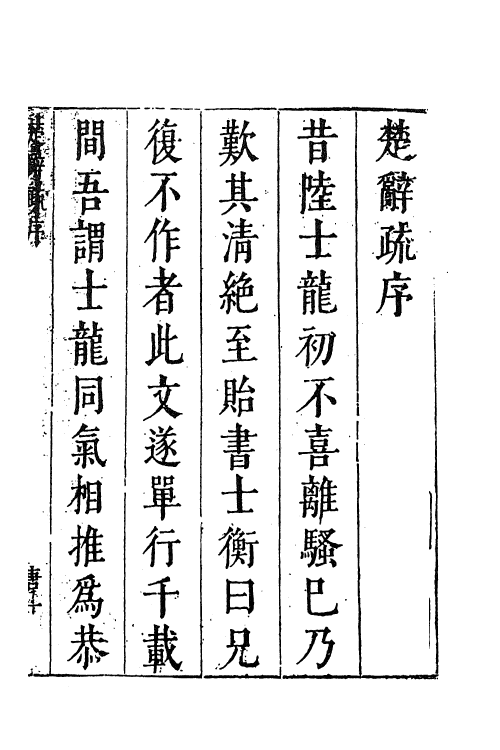 楚辭疏序
昔陸士龍初不喜離騷已乃
歎其清絕至貽書士衡曰兄
復不作者此文遂單行千載
間吾謂士龍同氣相推爲恭
楚辭疏序